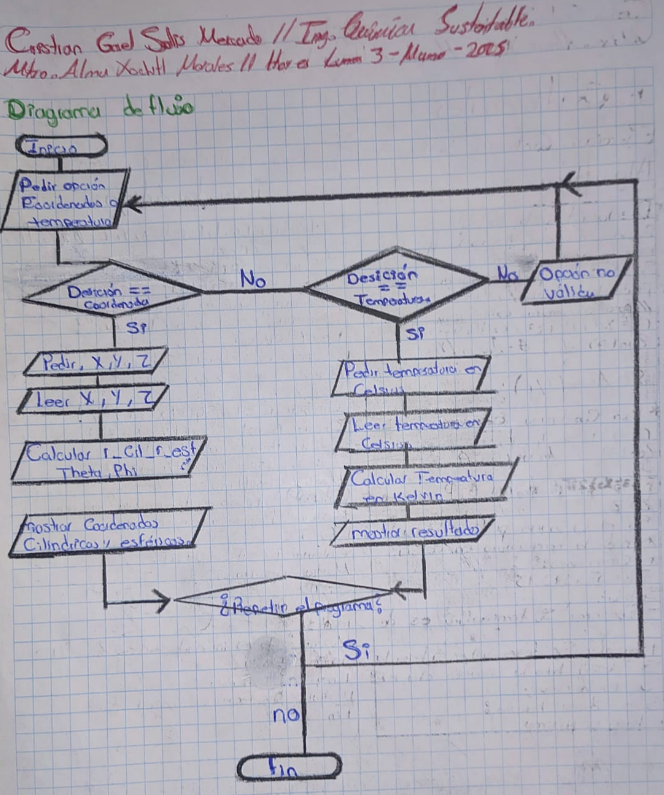 Cristian Gael Solis Mercado // Ing. Química Sustentable.
Mtro. Alma Xochitl Morales // 3-Marzo-2025
Diagrama de flujo
Inicio
Pedir opción
Coordenadas o
temperatura
Desición ==
Coordenada
No
Desición
==
Temperatura
No
Opción no
válida
Si
Si
Pedir, X, Y, Z
Leer X, Y, Z
Calcular r_cil_r_esf
Theta, Phi
mostrar Coordenadas
Cilindricas y esféricas
Pedir temperatura en
Celsius
Leer temperatura en
Celsius
Calcular Temperatura
en Kelvin
mostrar resultado
¿Repetir el programa?
Si
no
fin